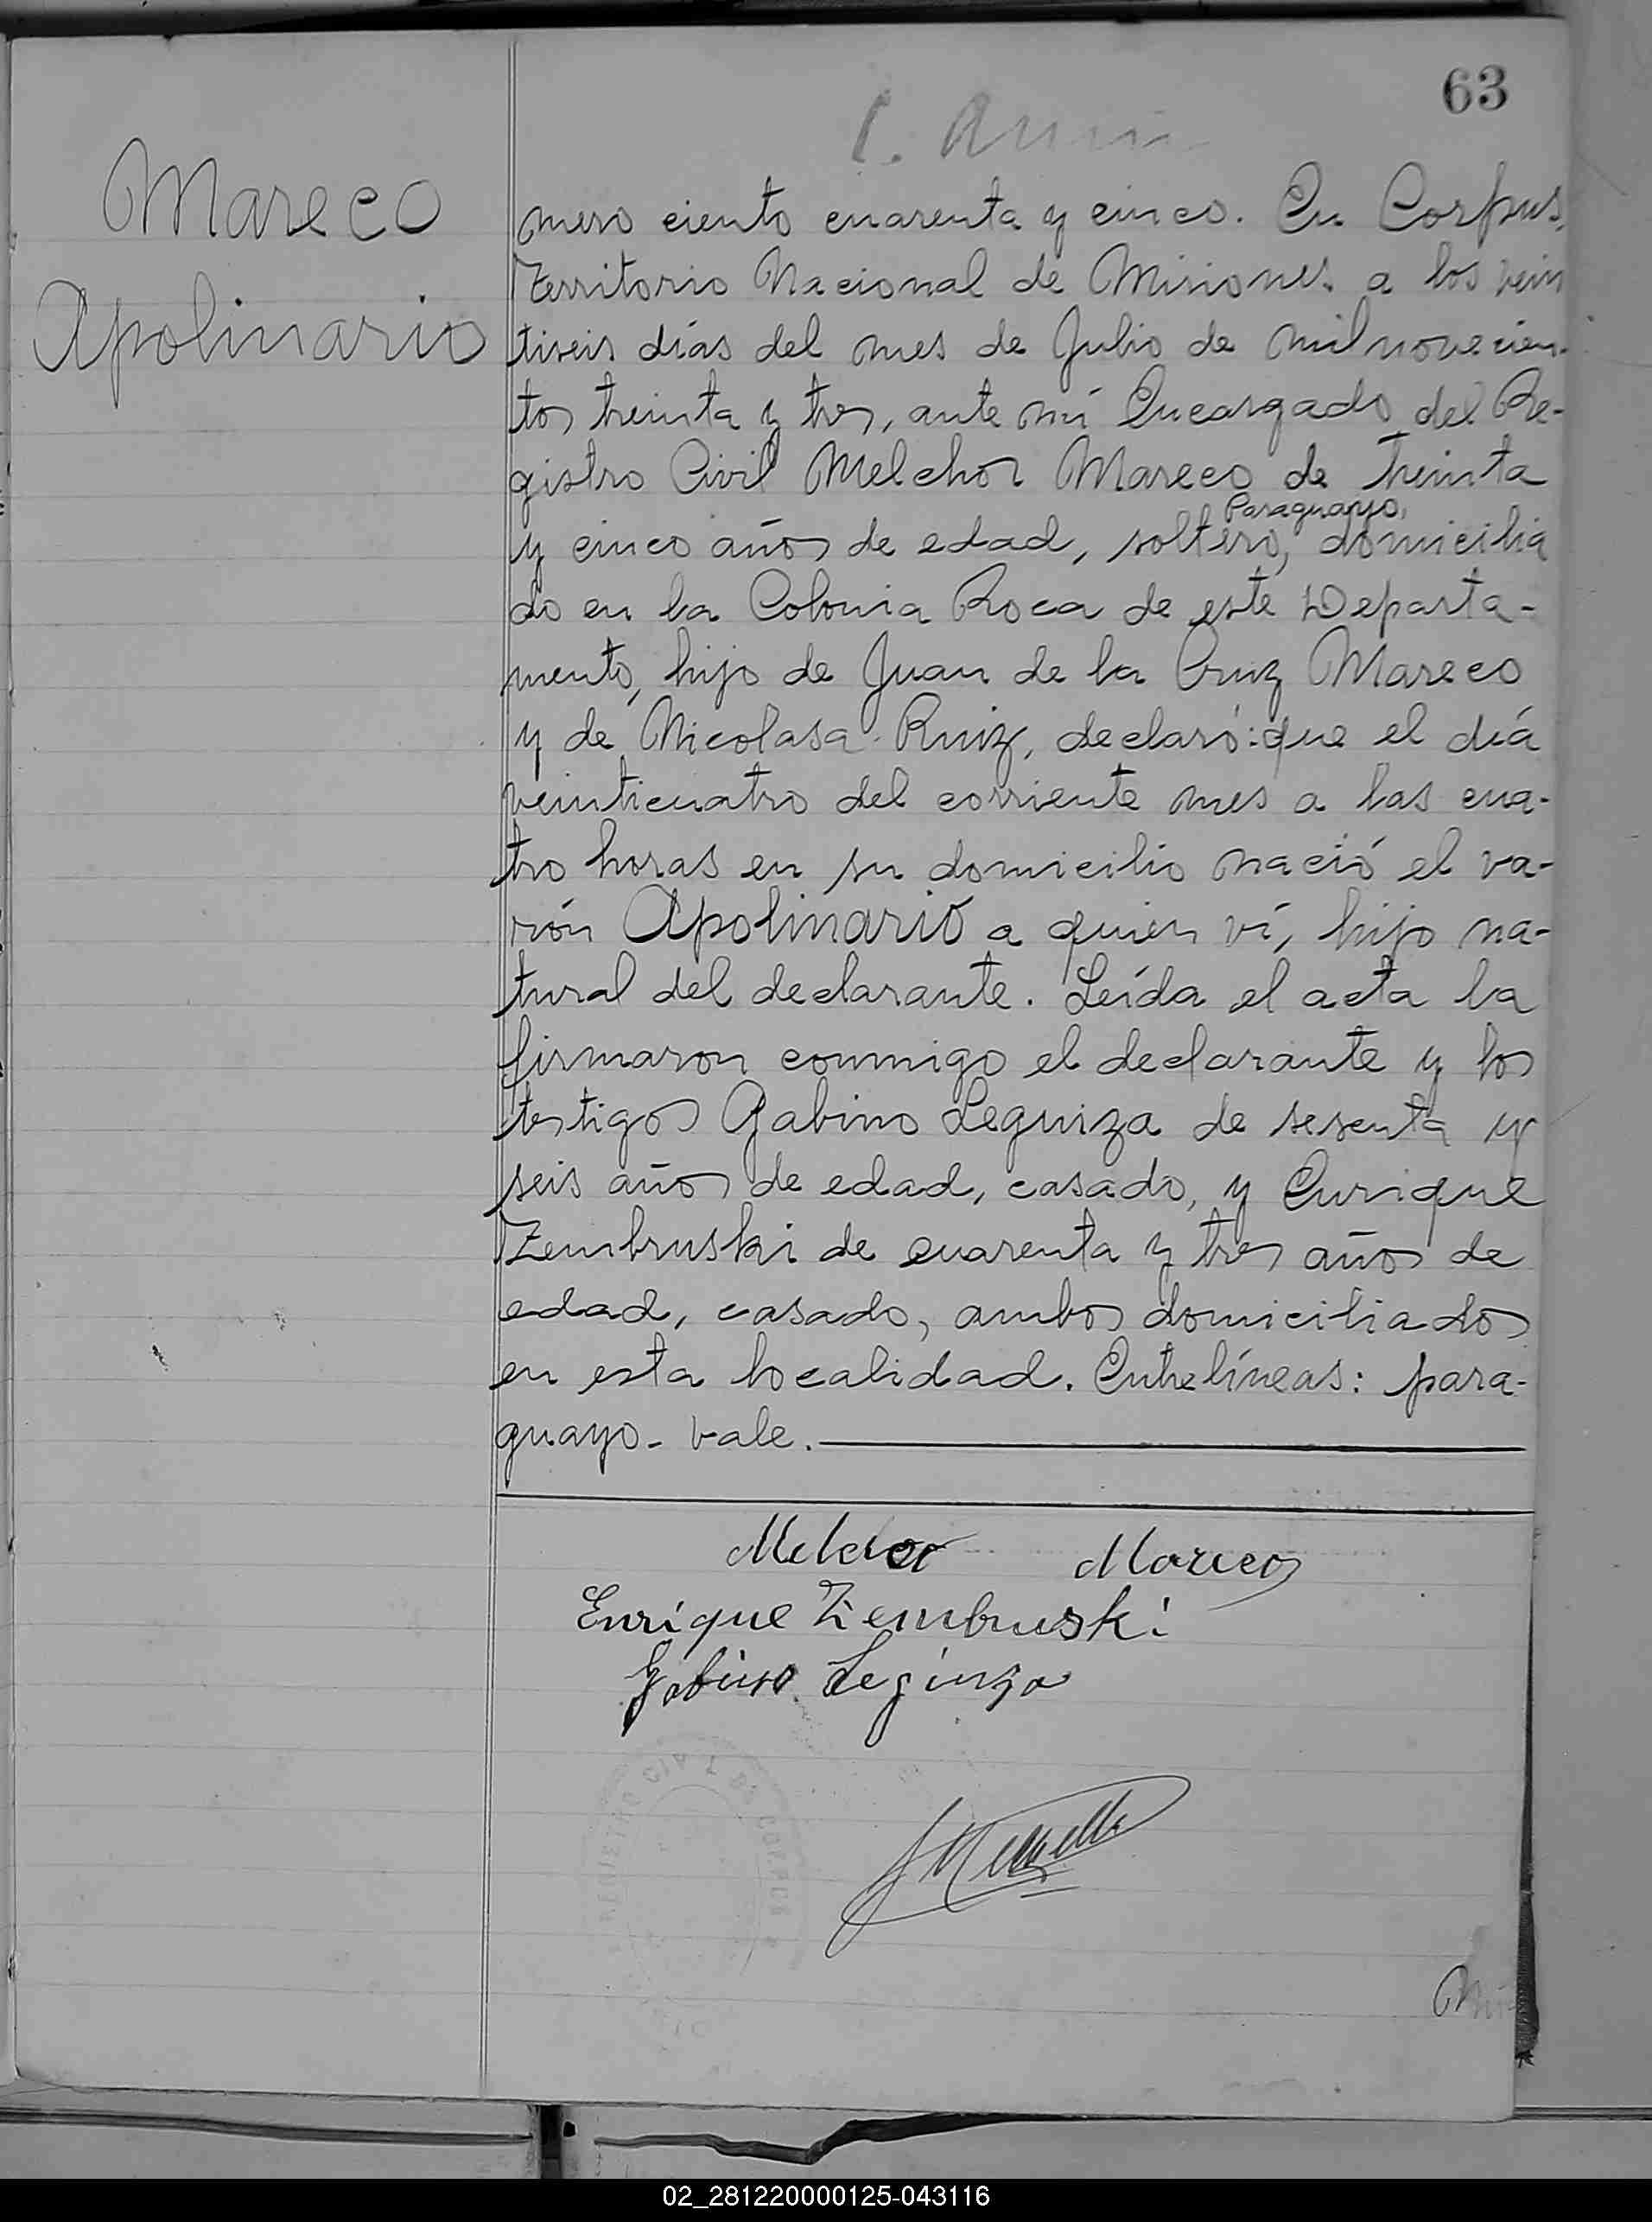 63
Mareco
Apolinario
mero ciento cuarenta y cinco. En Corpus,
Territorio Nacional de Misiones a los vein
tiseis días del mes de Julio de mil novecien-
tos treinta y tres, ante mí Encargado del Re-
gistro Civil Melchor Mareco de treinta
Paraguayo,
y cinco años de edad, soltero, domicilia
do en la Colonia Roca de este Departa-
mento, hijo de Juan de la Cruz Mareco
y de Nicolasa Ruiz, declaró: que el día
veinticuatro del corriente mes a las cua-
tro horas en su domicilio nació el va-
rón Apolinario a quien ví, hijo na-
tural del declarante. Leída el acta la
firmaron conmigo el declarante y los
testigos Gabino Leguiza de sesenta y
seis años de edad, casado, y Enrique
Zembruski de cuarenta y tres años de
edad, casado, ambos domiciliados
en esta localidad. Entrelíneas: para-
guayo- vale.
Melchor Mareco
Enrique Zembruski
Gabino Leguiza
02_281220000125-043116